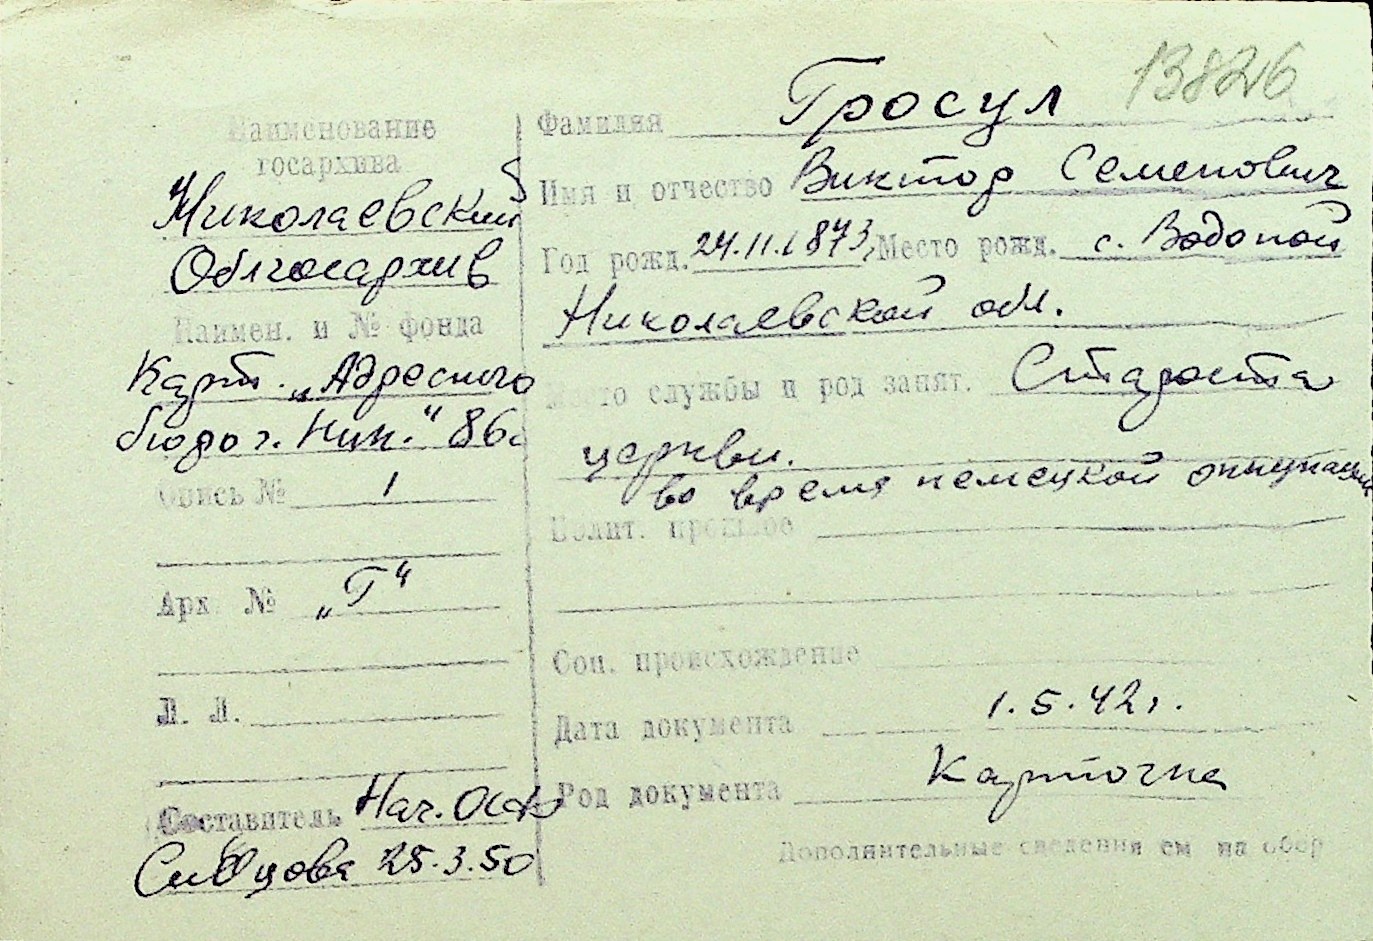 13826
Наименование
госархива
Николаевский
Облгосархив
Наимен. и № фонда
Карт. „Адресного
бюро г. Ник." 86с
Опись № 1
Арх № „Г"
Л. Л.
Составитель Нач.
25.3.50
Фамилия Гросул
Имя и отчество Виктор Семенович
Год рожд. 24.11.1873, Место рожд. с. Водопой
Николаевской обл.
Место службы и род занят. Староста
церкви.
во время немецкой оккупации
Полит. прошлое
Соц. происхождение
Дата документа 1.5.42г.
Род документа Карточка
Дополнительные сведения см на обор